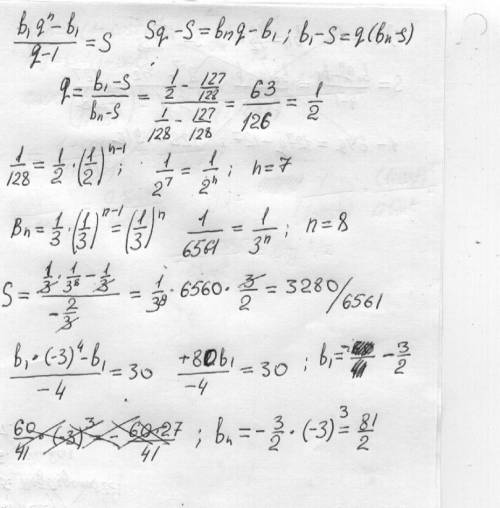 (b₁qⁿ - b₁)/(q-1) = S   Sq - S = bₙq - b₁; b₁-S = q(bₙ-S)
q = (b₁-S)/(bₙ-S) = (1/2 - 127/128)/(1/128 - 127/128) = 63/126 = 1/2
1/128 = 1/2 · (1/2)ⁿ⁻¹;   1/2⁷ = 1/2ⁿ; n=7
Bₙ = 1/3 · (1/3)ⁿ⁻¹ = (1/3)ⁿ   1/6561 = 1/3ⁿ; n=8
S = (1/3 · 1/3⁸ - 1/3)/(-2/3) = 1/3⁸ · 6560 · 3/2 = 3280/6561
(b₁·(-3)⁴ - b₁)/(-4) = 30   +80b₁/(-4) = 30; b₁ = - 3/2
60/41 · (-3)³ = - 60·27/41; bₙ = -3/2 · (-3)³ = 81/2